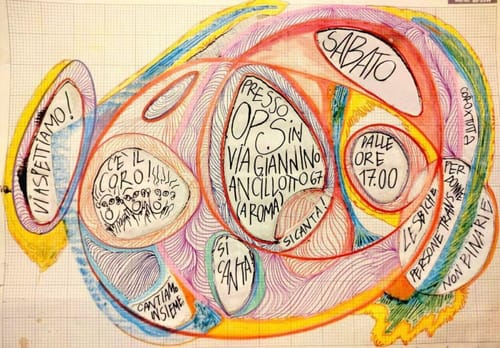 VI ASPETTIAMO!
C'E IL
CORO!!!!
PRESSO
OPS in
VIA GIANNINO
ANCILLOTTO 67
(A ROMA)
SI CANTA!
SI
CANTA!
CANTIAMO
INSIEME
SABATO
DALLE
ORE
17.00
LESBICHE
PERSONE TRANS
PERSONE
NON BINARIE